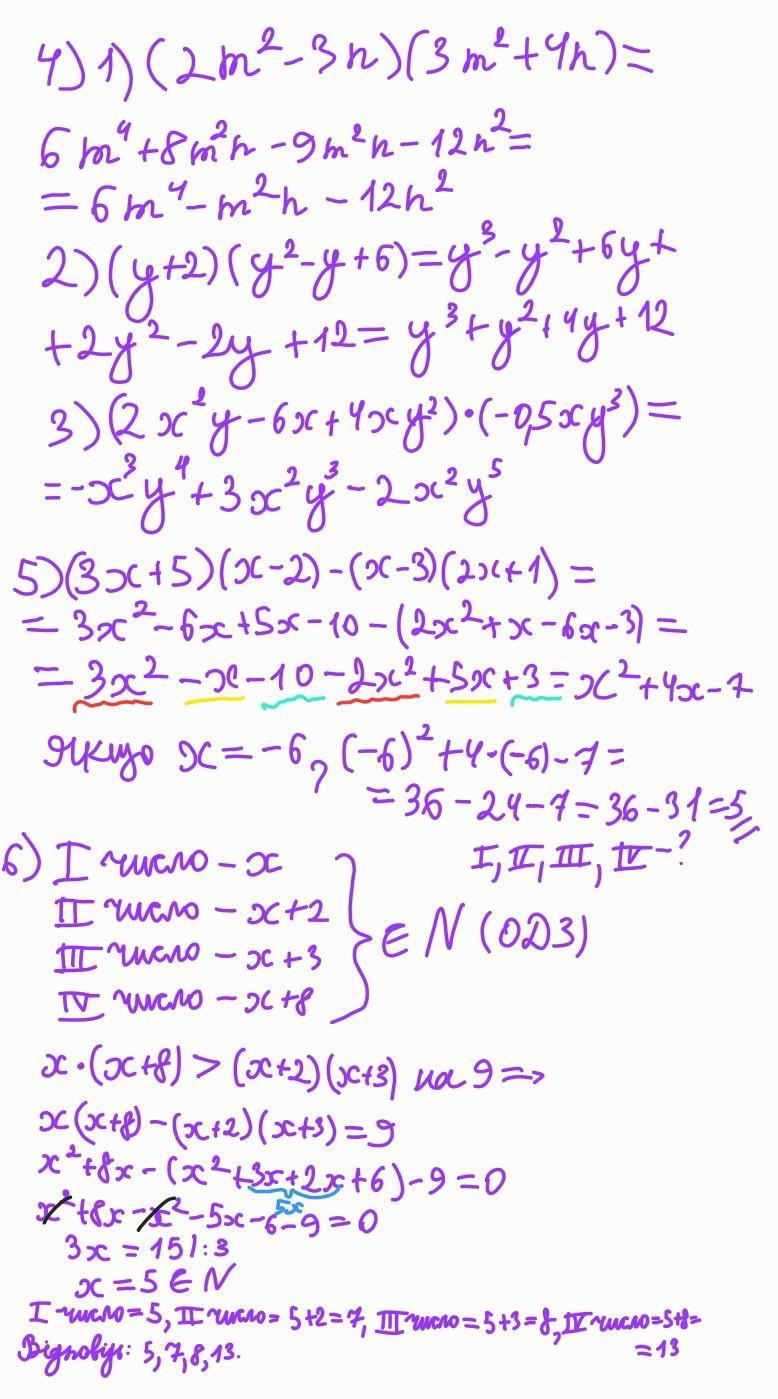 4) 1) (2m² - 3n)(3m² + 4n) =
6m⁴ + 8m²n - 9m²n - 12n² =
= 6m⁴ - m²n - 12n²
2) (y+2)(y² - y + 6) = y³ - y² + 6y +
+ 2y² - 2y + 12 = y³ + y² + 4y + 12
3) (2x²y - 6x + 4xy²)·(-0,5xy³) =
= -x³y⁴ + 3x²y³ - 2x²y⁵
5) (3x+5)(x-2) - (x-3)(2x+1) =
= 3x² - 6x + 5x - 10 - (2x² + x - 6x - 3) =
= 3x² - x - 10 - 2x² + 5x + 3 = x² + 4x - 7
Якщо x = -6, (-6)² + 4·(-6) - 7 =
= 36 - 24 - 7 = 36 - 31 = 5
I, II, III, IV - ?
6) I число - x
II число - x+2
III число - x+3
IV число - x+8
∈ N (ОДЗ)
x·(x+8) > (x+2)(x+3) на 9 ⇒
x(x+8) - (x+2)(x+3) = 9
x² + 8x - (x² + 3x + 2x + 6) - 9 = 0
5x
x² + 8x - x² - 5x - 6 - 9 = 0
3x = 15 |:3
x = 5 ∈ N
I число = 5, II число = 5+2 = 7, III число = 5+3 = 8, IV число = 5+8 =
= 13
Відповідь: 5, 7, 8, 13.